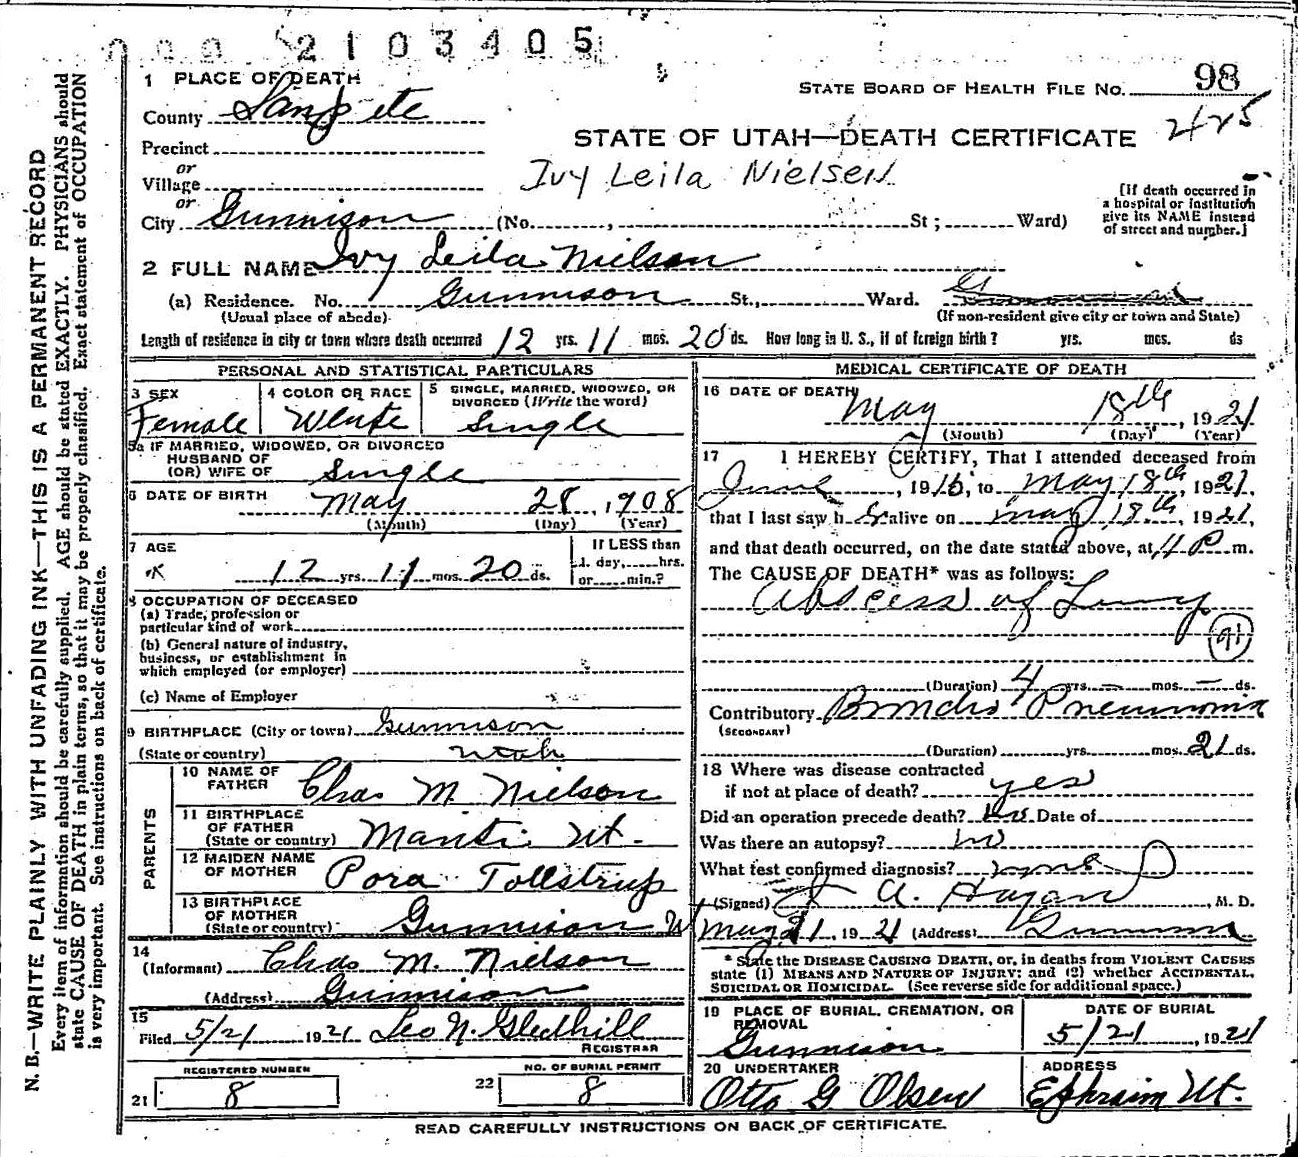 000 2103405
1 PLACE OF DEATH
STATE BOARD OF HEALTH FILE NO. 98
County Sanpete
425
STATE OF UTAH—DEATH CERTIFICATE
Precinct
or
Village
Ivy Leila Nielsen
or
City Gunnison (No. , St; Ward)
[If death occurred in a hospital or institution give its NAME instead of street and number.]
2 FULL NAME Ivy Leila Nielson
(a) Residence. No. Gunnison St., Ward.
(Usual place of abode) (If non-resident give city or town and State)
Length of residence in city or town where death occurred 12 yrs. 11 mos. 20 ds. How long in U. S., if of foreign birth? yrs. mos. ds
PERSONAL AND STATISTICAL PARTICULARS
3 SEX
Female
4 COLOR OR RACE
White
5 SINGLE, MARRIED, WIDOWED, OR DIVORCED (Write the word)
Single
5a IF MARRIED, WIDOWED, OR DIVORCED
HUSBAND OF
(OR) WIFE OF Single
6 DATE OF BIRTH May 28, 1908
(Month) (Day) (Year)
7 AGE
OK 12 yrs. 11 mos. 20 ds.
If LESS than
1 day, hrs.
or min.?
8 OCCUPATION OF DECEASED
(a) Trade, profession or
particular kind of work
(b) General nature of industry,
business, or establishment in
which employed (or employer)
(c) Name of Employer
9 BIRTHPLACE (City or town) Gunnison
(State or country) Utah
PARENTS
10 NAME OF FATHER Chas M. Nielson
11 BIRTHPLACE OF FATHER (State or country) Manti Ut.
12 MAIDEN NAME OF MOTHER Pora Tollstrup
13 BIRTHPLACE OF MOTHER (State or country) Gunnison U
14
(Informant) Chas M. Nielson
(Address) Gunnison
15
Filed 5/21 1921 Leo N. Gledhill
REGISTRAR
REGISTERED NUMBER
21 8
NO. OF BURIAL PERMIT
22 8
MEDICAL CERTIFICATE OF DEATH
16 DATE OF DEATH
May 18th, 1921
(Month) (Day) (Year)
17 I HEREBY CERTIFY, That I attended deceased from
June, 1916, to May 18th, 1921,
that I last saw her alive on May 18th, 1921,
and that death occurred, on the date stated above, at 11 P m.
The CAUSE OF DEATH* was as follows:
Abscess of Lung
91
(Duration) 4 yrs. – mos. – ds.
Contributory Broncho Pneumonia
(SECONDARY)
(Duration) yrs. mos. 21 ds.
18 Where was disease contracted
if not at place of death? yes
Did an operation precede death? no Date of
Was there an autopsy? no
What test confirmed diagnosis? none
(Signed) A. Hagan, M. D.
May 21, 1921 (Address) Gunnison
* State the DISEASE CAUSING DEATH, or, in deaths from VIOLENT CAUSES
state (1) MEANS AND NATURE OF INJURY; and (2) whether ACCIDENTAL,
SUICIDAL OR HOMICIDAL. (See reverse side for additional space.)
19 PLACE OF BURIAL, CREMATION, OR REMOVAL
Gunnison
DATE OF BURIAL
5/21, 1921
20 UNDERTAKER
Otto G. Olsen
ADDRESS
Ephraim Ut.
READ CAREFULLY INSTRUCTIONS ON BACK OF CERTIFICATE.
N. B.—WRITE PLAINLY WITH UNFADING INK—THIS IS A PERMANENT RECORD
Every item of information should be carefully supplied. AGE should be stated EXACTLY. PHYSICIANS should
state CAUSE OF DEATH in plain terms, so that it may be properly classified. Exact statement of OCCUPATION
is very important. See instructions on back of certificate.